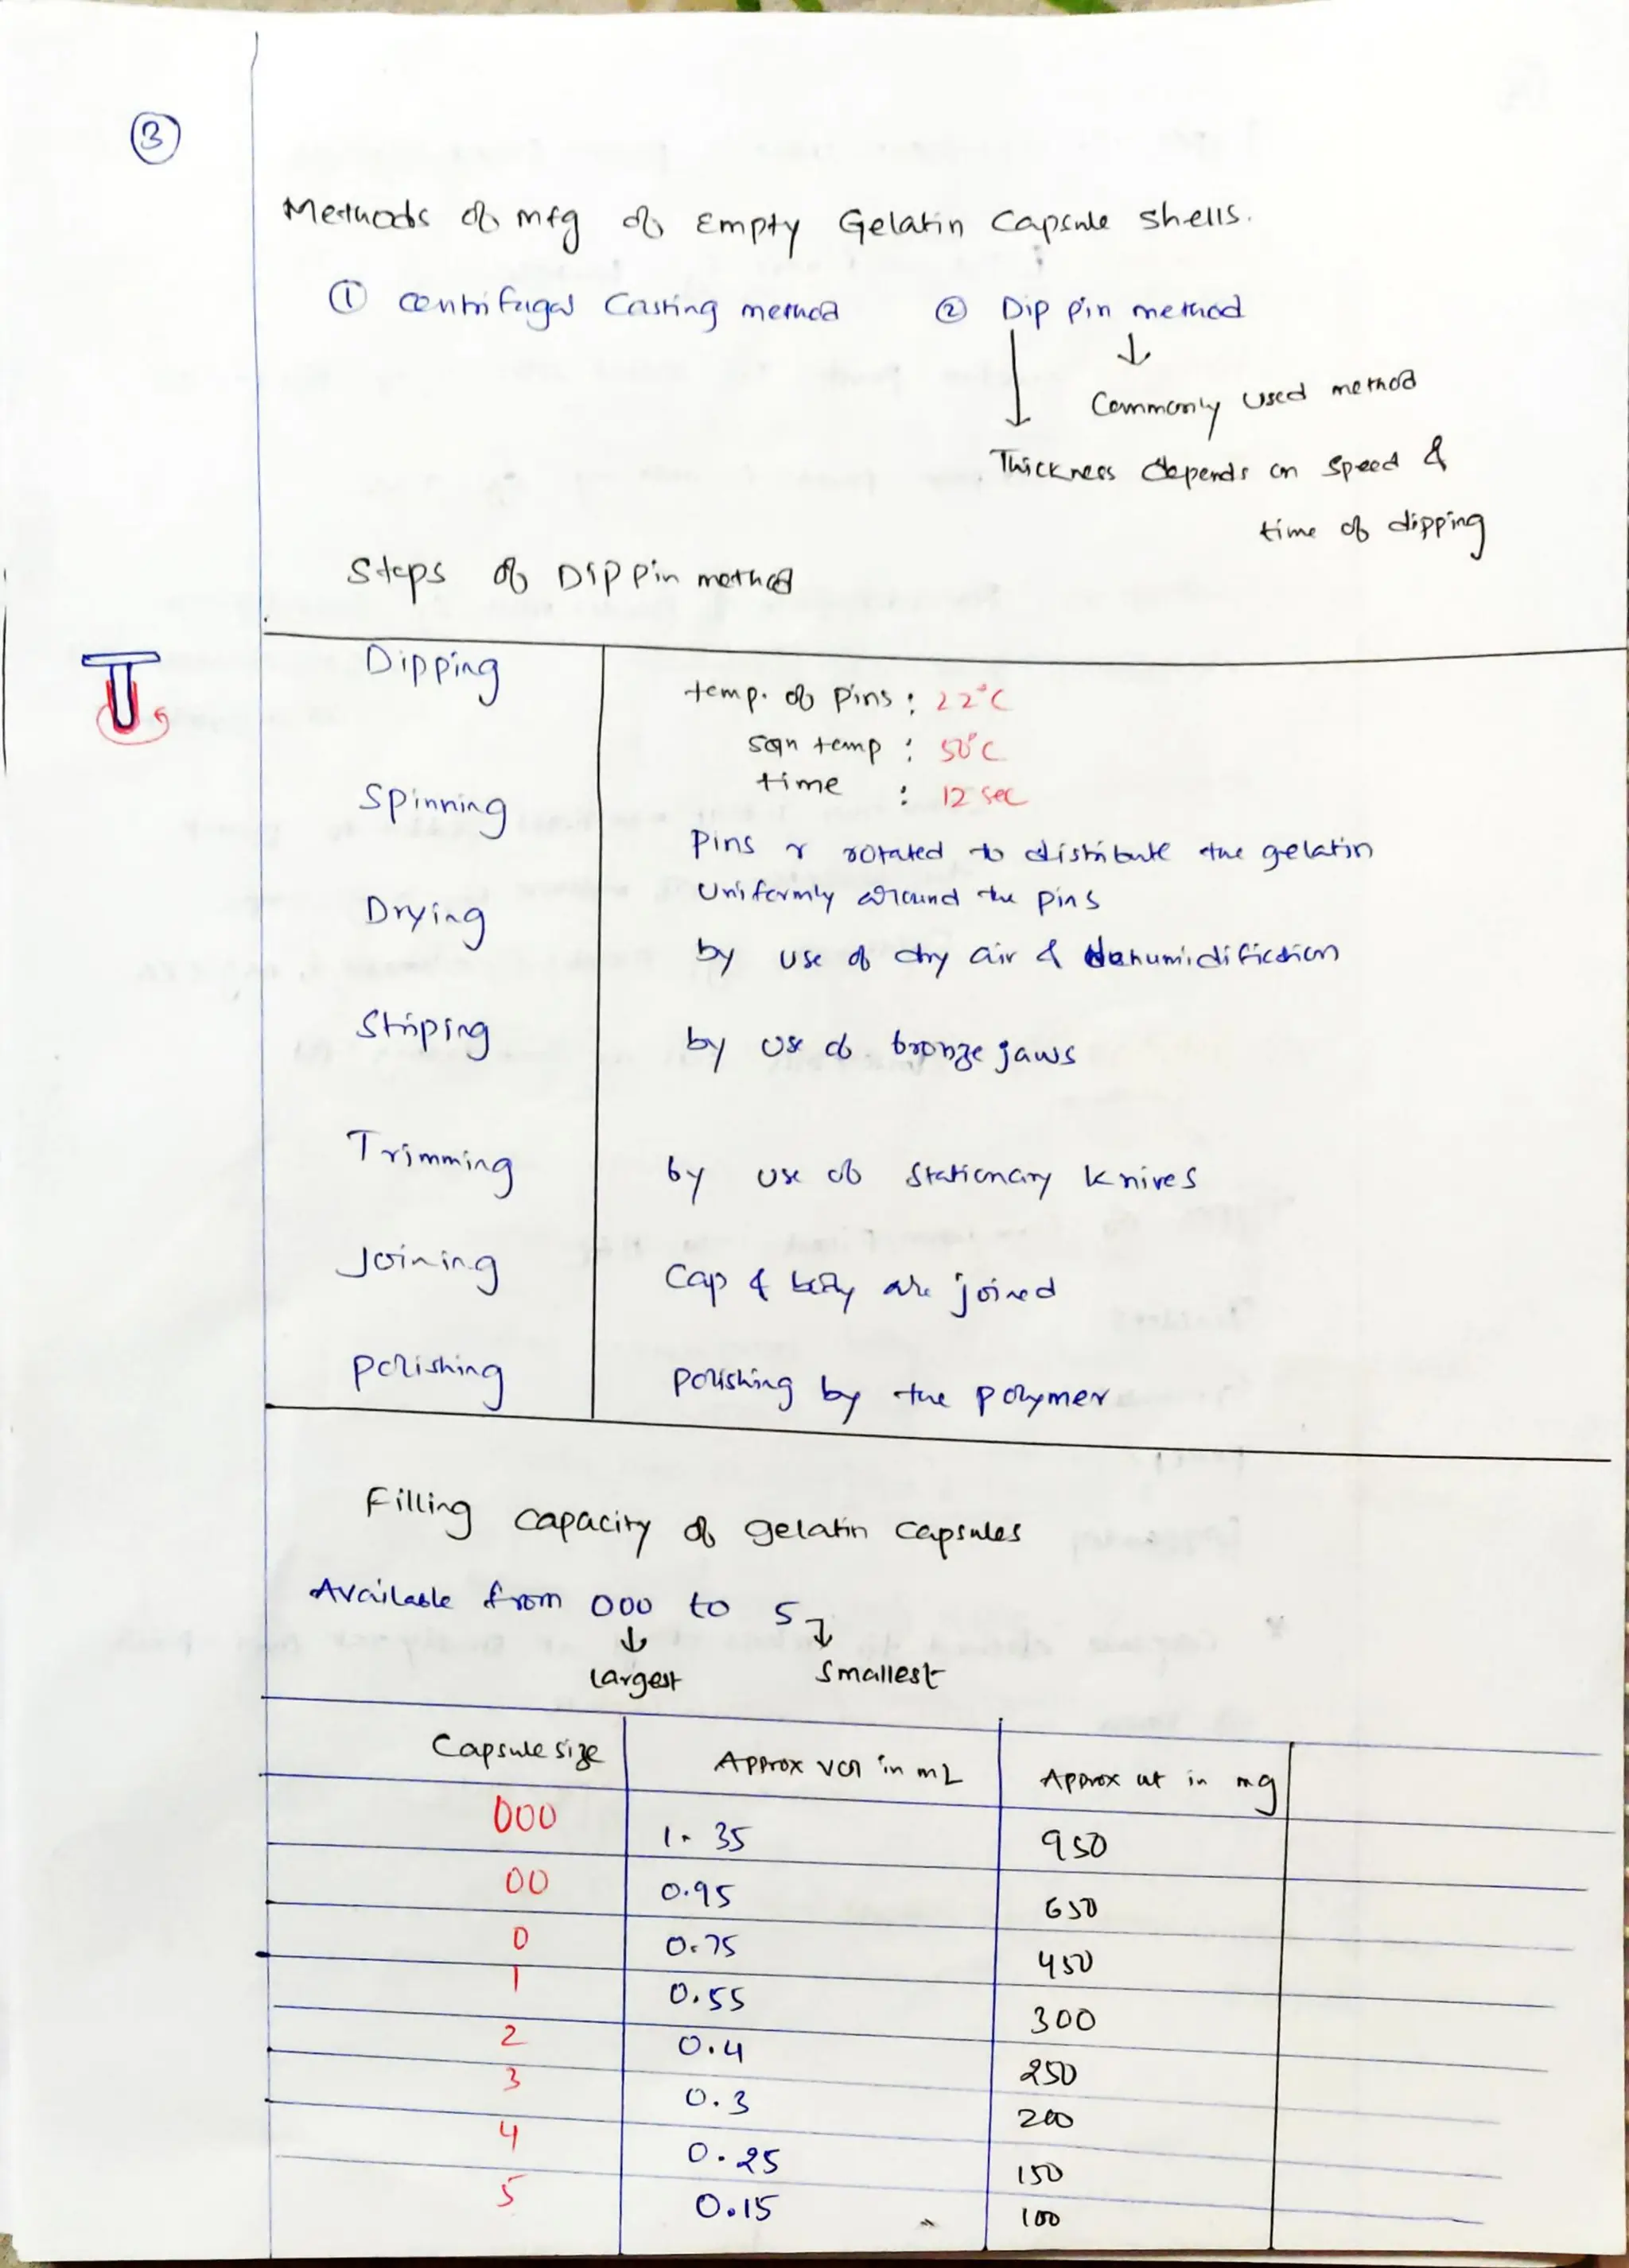 3
Methods of mfg of Empty Gelatin Capsule shells.
① Centrifugal Casting method ② Dip pin method
↓ ↓
Commonly used method
Thickness depends on speed &
time of dipping
Steps of Dip pin method
Dipping temp. of pins : 22°C
soln temp : 50°C
time : 12 sec
Spinning Pins r rotated to distribute the gelatin
Uniformly around the pins
Drying by use of dry air & dehumidification
Striping by use of bronze jaws
Trimming by use of stationary knives
Joining Cap & body are joined
Polishing Polishing by the polymer
Filling capacity of gelatin capsules
Available from 000 to 5
↓ ↓
largest smallest
Capsule size Approx vol in mL Approx wt in mg
000 1.35 950
00 0.95 650
0 0.75 450
1 0.55 300
2 0.4 250
3 0.3 200
4 0.25 150
5 0.15 100